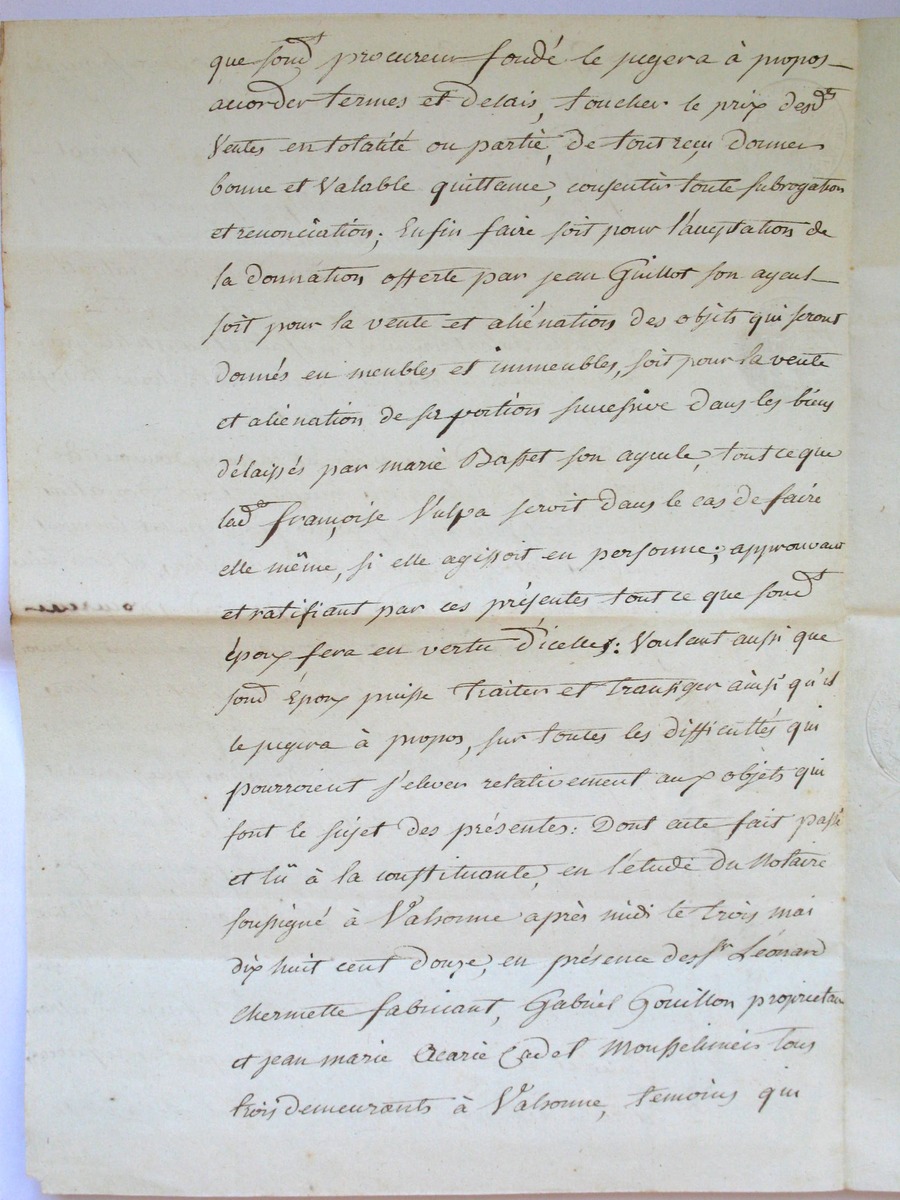 que sond.t procureur fondé le jugera à propos
accorder termes et delais, toucher le prix desd.tes
Ventes en totalité ou partie, de tout reçu donner
bonne et Valable quittance, consentir toute subrogation
et renonciation; Enfin faire soit pour l'acceptation de
la donnation offerte par jean Guillot son ayeul
soit pour la vente et aliénation des objets qui seront
donnés en meubles et immeubles, soit pour la vente
et aliénation de sa portion successive dans les biens
délaissés par marie Basset son ayeule, tout ce que
lad.e françoise Vulpa seroit dans le cas de faire
elle même, si elle agissoit en personne; approuvant
et ratifiant par ces présentes tout ce que sond.t
époux fera en vertu d'icelles: Voulant aussi que
sond Epoux puisse traiter et transiger ainsi qu'il
le jugera à propos, sur toutes les difficultés qui
pourroient s'elever relativement aux objets qui
font le sujet des présentes: Dont acte fait passé
et lü à la constituante, en l'étude du Notaire
soussigné à Valsonne après midi le trois mai
dix huit cent douze, en présence des s.rs Léonard
Chermette fabricant, Gabriel Gouillon proprietaire
et jean marie Cadel Mousselinier tous
trois demeurants à Valsonne, temoins qui